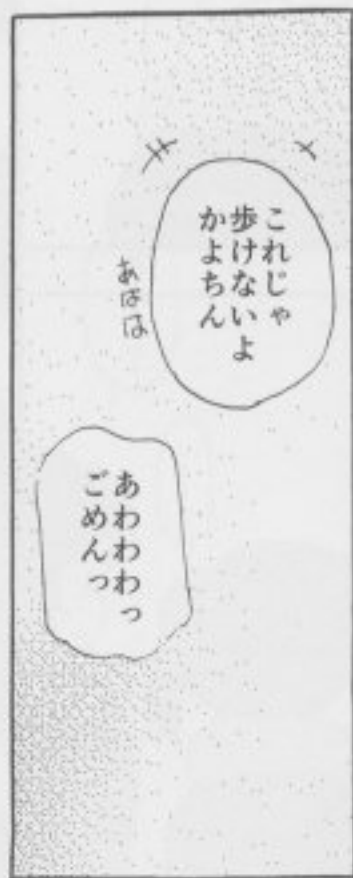 これじゃ
歩けないよ
かよちん
あはは
あわわわっ
ごめんっ